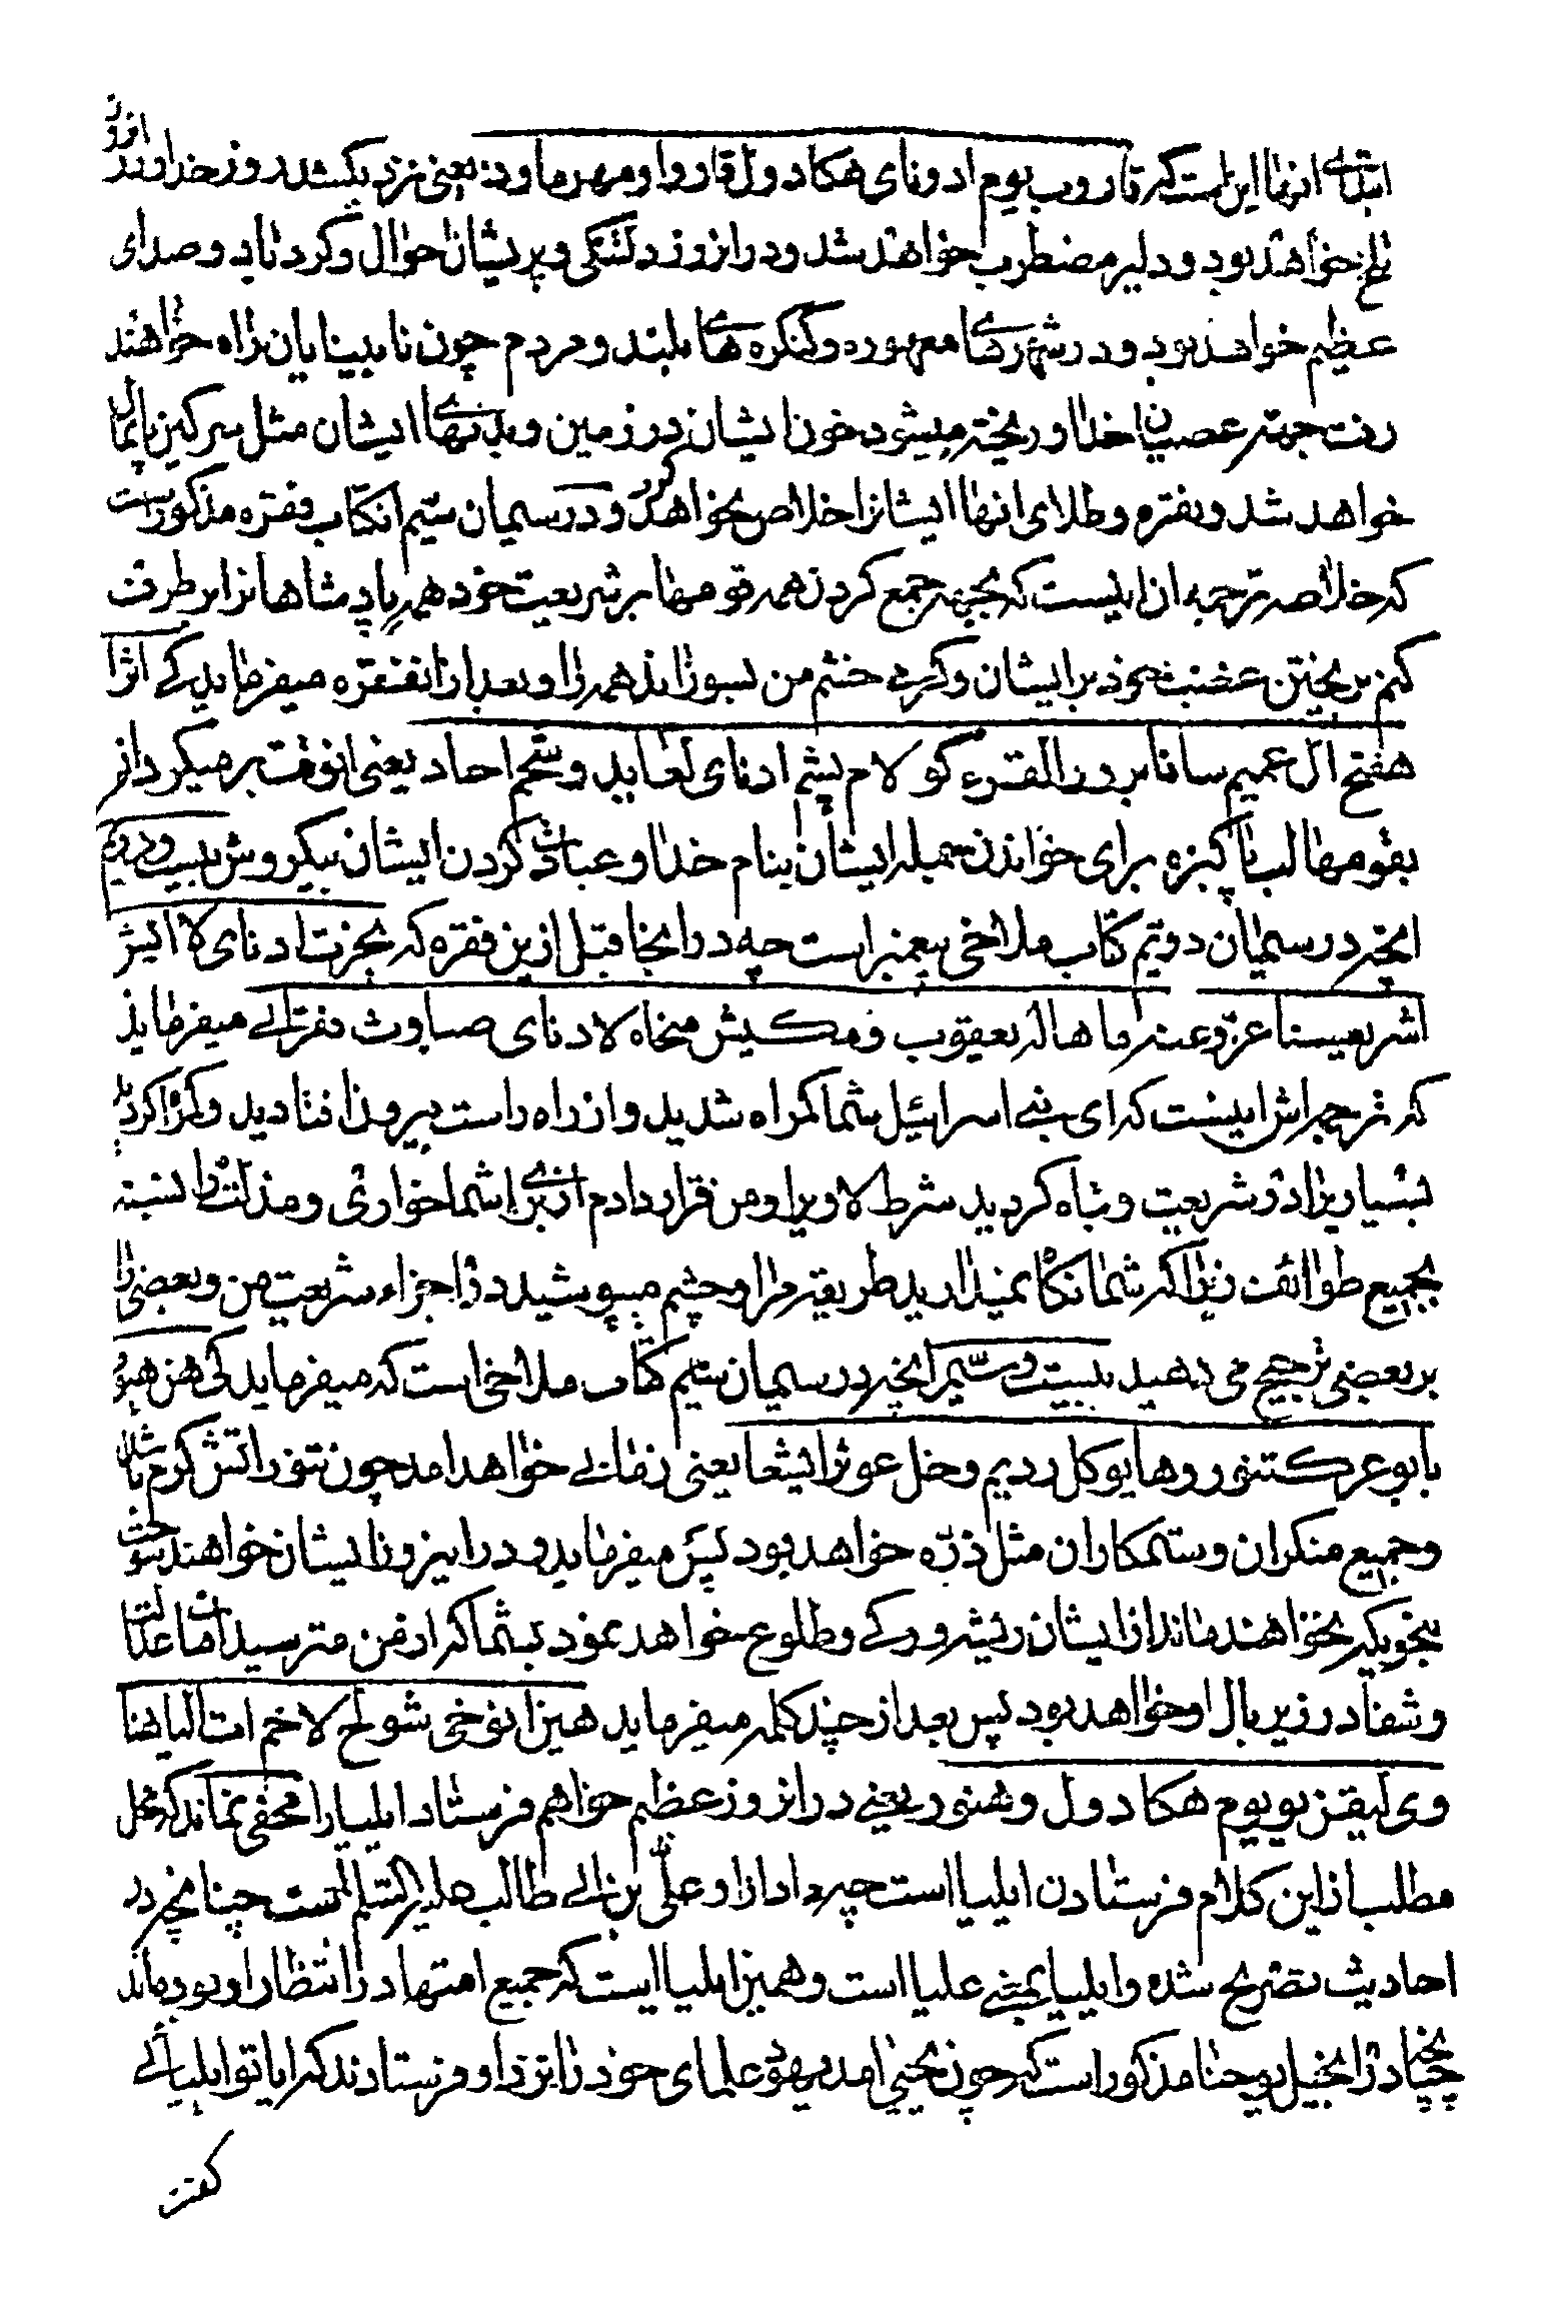 ابتدای انها اینست که قاروب یوم ادونای هکادول قاروا ومهر ماود یعنی نزدیکشد روز خداوند انروز
تلخ خواهد بود ودلیر مضطرب خواهد شد ودر انروز دلتنکی وپریشان احوال وکرد ناید وصدای
عظیم خواهد بود ودر شهرهای معموره وکنکره های بلند ومردم چون نابینایان راه خواهند
رفت جهة عصیان خدا وریخته میشود خون ایشان در زمین وبدنهای ایشان مثل سرکین پایمال
خواهد شد ونقره وطلای انها ایشانرا خلاص نخواهد کرد ودر سیمان سیم انکتاب فقره مذکور است
که خلاصه ترجمه ان اینست که بجهة جمع کردن همه قومها بر شریعت خود همه پادشاهانرا بر طرف
کنم بریختن غضب خود بر ایشان وکرمی خشم من بسوزاند همه را وبعد از انفقره میفرماید کی ازا
هفتح ال عمیم سافا برورا لقرء کو لام بشم ادنای لعابد وشخم احاد یعنی انوقت بر میکردانم
بقومها لب پاکیزه برای خواندن همه ایشان بنام خدا وعبادت کردن ایشان بیکروش بیست ودویم
انچه در سیمان دویم کتاب ملاخی پیغمبر است چه در انجا قبل از این فقره که بخرت ادنای لا ایش
اشر یعیسنا عر وعنه ماهاله یعقوب ومکیش منخاه لادنای صباوث فقراتی میفرماید
که ترجمه اش اینست که ای بنی اسرائیل شما کمراه شدید واز راه راست بیرون افتادید وکمراه کردید
بسیاریرا در شریعت وتباه کردید شرط لاویرا ومن قرار دادم از برای شما خواری ومذلت را نسبت
بجمیع طوائف زیرا که شما نکاه نمیدارید طریقه مرا وچشم میپوشید در اجزاء شریعت من وبعضی را
بر بعضی ترجیح می دهید بیست وسیم انچه در سیمان سیم کتاب ملاخی است که میفرماید کی هنه هیوم
بابوعر کتنور وهایو کل ردیم وخل عوثرا یشعا یعنی زمانی خواهد امد چون تنور اتش کرم باشد
وجمیع منکران وستمکاران مثل ذره خواهد بود پس میفرماید ودر این روز ایشان خواهند سوخت
بنحویکه نخواهند ماند از ایشان ریشه وركی وطلوع خواهد نمود بشما که از من مترسید افتاب عدالت
وشفا در زیر بال او خواهد بود پس بعد از چند کلمه میفرماید هینه انوخی شولح لاخم ات الیا هنا
وی لیفنه بو یوم هکادول وهنور یعنی در انروز عظیم خواهم فرستاد ایلیا را مخفی نماند که محل
مطلب از این کلام فرستادن ایلیا است چه مراد از او علی بن ابی طالب علیه السلم است چنانچه در
احادیث تصریح شده وایلیا بمعنی علیا است وهمین ایلیا ایست که جمیع امتها در انتظار او بوده اند
چنانچه در انجیل یوحنا مذکور است که چون یحیی امد یهود علمای خود را نزد او فرستادند که ایا تو ایلیائی
کفت